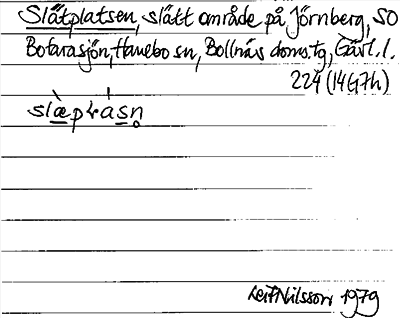 Slätplatsen, slätt område på Jörnberg, SO
Bofarasjön, Hanebo sn, Bollnäs doms.tg, Gävl. l.
224 (14G7h)
slæ̀pɬásn̥
Leif Nilsson 1979